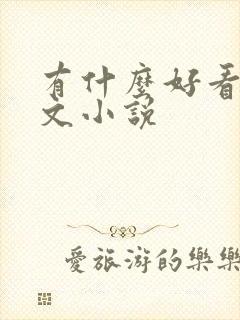 有什麼好看
文小説
愛旅游的樂樂